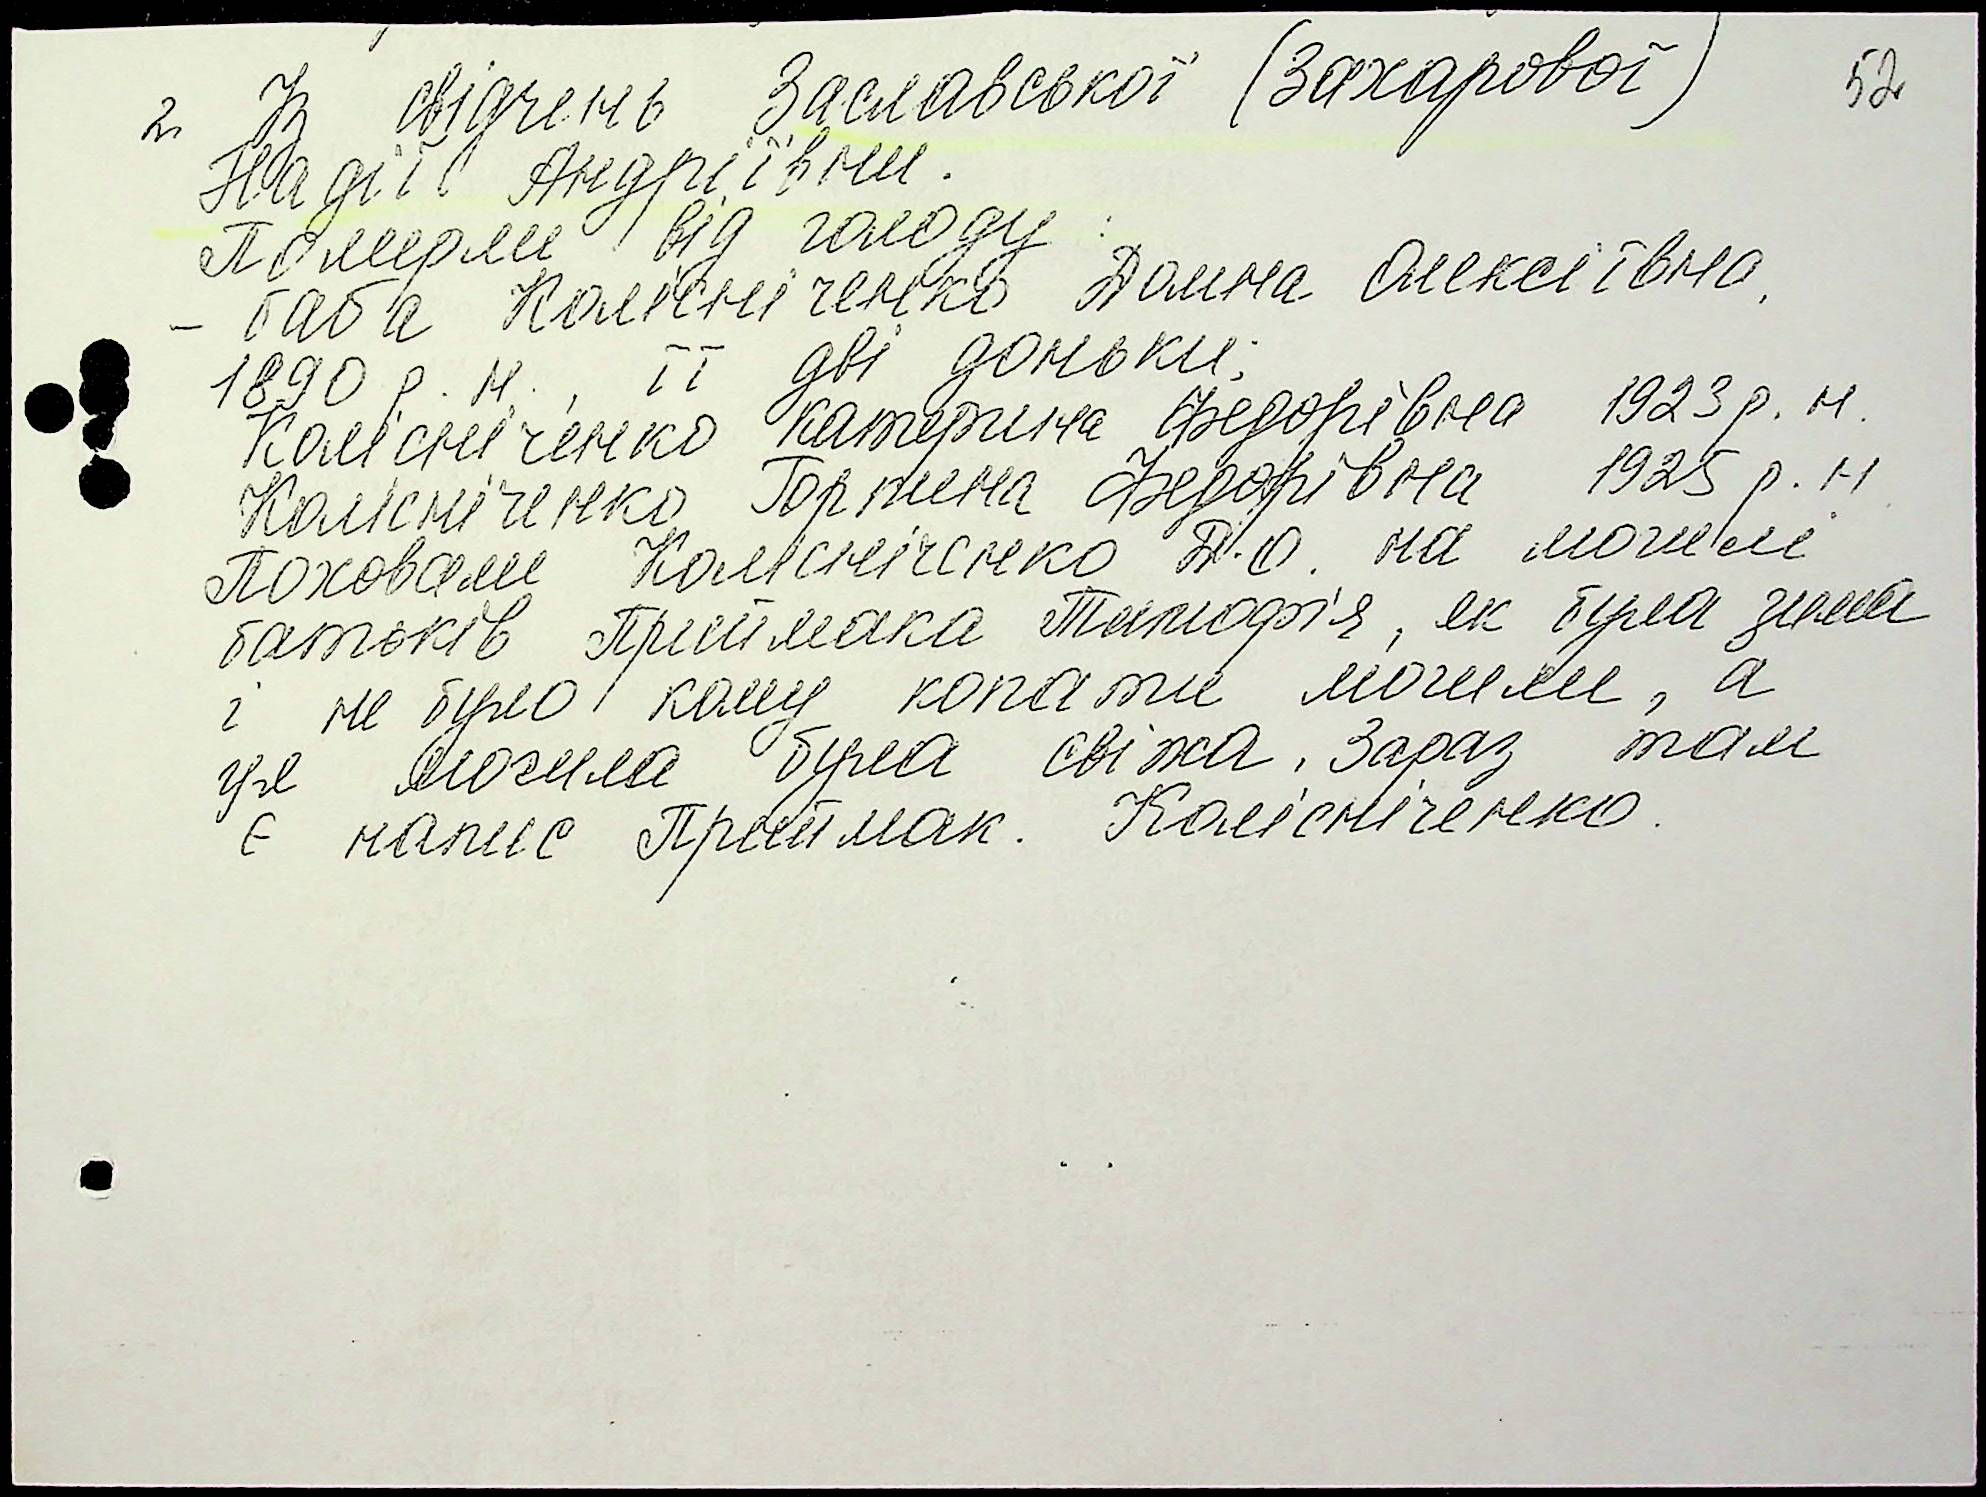 52
2. Із свідчень Заславської (Захарової)
Надії Андріївни.
Померли від голоду:
- баба Колісніченко Домна Олексіївна,
1890 р.н., її дві доньки:
Колісніченко Катерина Федорівна 1923 р.н.
Колісніченко Горпина Федорівна 1925 р.н
Поховали Колісніченко Д.О. на могилі
батьків Приймака Тимофія, як була зима
і не було кому копати могили, а
ця могила була свіжа. Зараз там
є напис Приймак. Колісніченко.